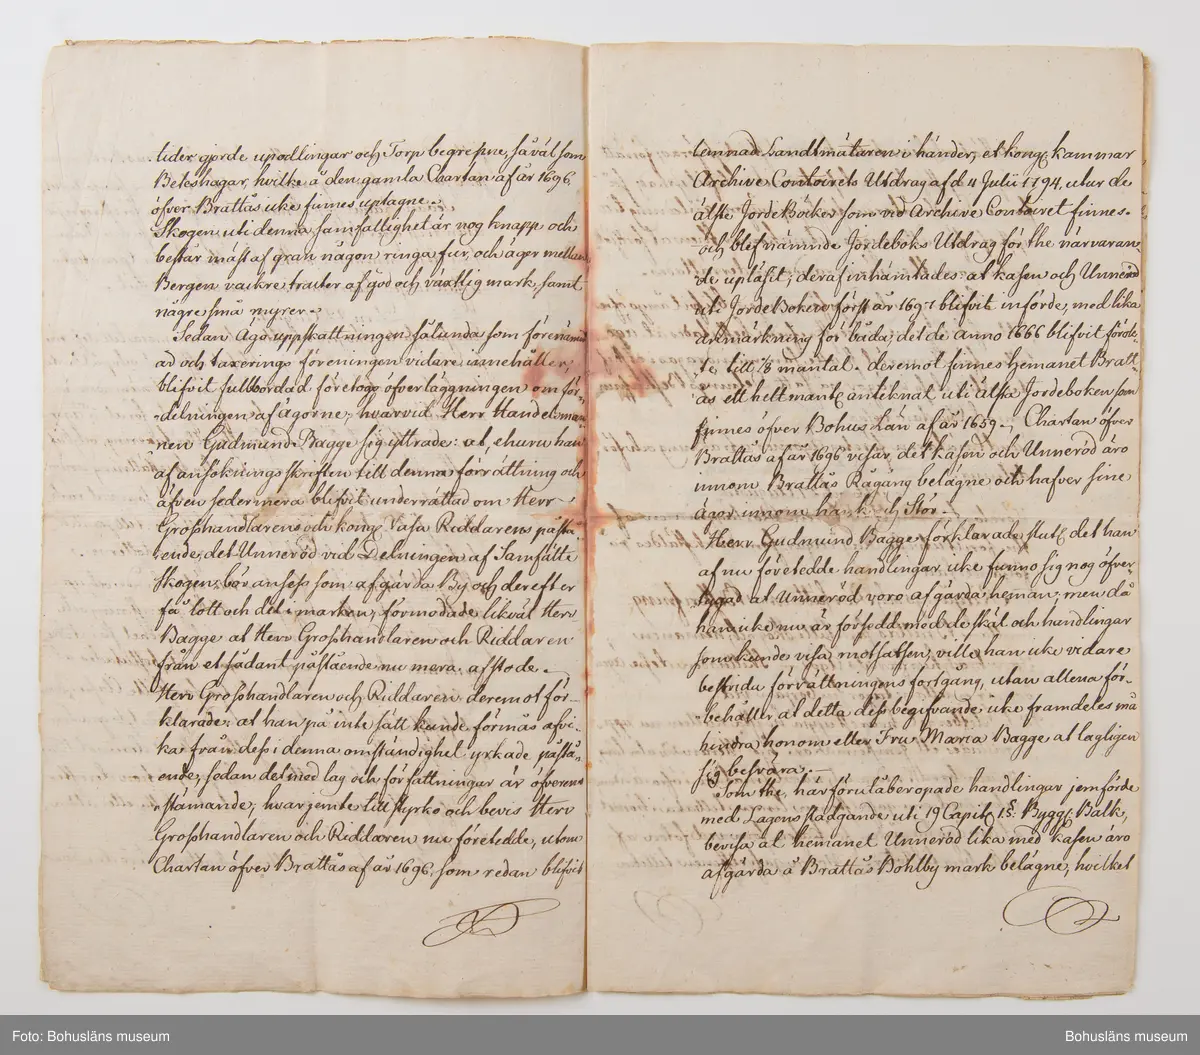 tider gjorde upodlingar och Torp begrepne, såväl som
Beteshagar, hvilke å den gamla Chartan af år 1696,
öfver Brattås icke finnes uptagne.
Skogen uti denna samfällighet är nog knapp och
består mäst af gran någon ringa fur, och äger mellan
Bergen vackre tracter af god och växtlig mark, samt
någre små myrer.
Sedan Ägo uppskattningen sålunda som förenämnd
ad och taxerings föreningen vidare innehåller,
blifvit fullbordad företogs öfverläggningen om för-
delningen af ägorne, hvarvid Herr Handelsman-
nen Gudmund Bagge sig yttrade: at, ehuru han
af ansöknings skriften till denna förrättning och
äfven sedermera blifvit underrättad om Herr
Grosshandlarens och Kong Vasa Riddarens påstå-
ende, det Unneröd vid Delningen af Samfälte
Skogen, bör anses som afgärda By och derefter
få lott och del i marken, förmodade likväl Herr
Bagge at Herr Grosshandlaren och Riddaren
från et sådant påstående nu mera afstode.
Herr Grosshandlaren och Riddaren deremot för-
klarade: at han på inte sätt kunde förmås afvi-
ka från dess i denna omständighet yrkade påstå-
ende, sedan det med lag och författningar är öfverens-
stämande, hvarjemte till styrko och bevis Herr
Grosshandlaren och Riddaren nu företedde, utom
Chartan öfver Brattås af år 1696, som redan blifvit
lemnad Landtmätaren i händer, et Kongl Kammar
Archive Contoirets Utdrag af d 4 Julii 1794, utur de
älste Jorde Böcker som vid Archive Contoiret finnes.
och blef nämnde Jordeboks Utdrag för the närvaran-
de upläsit; deraf inhämtades: at Kasen och Unneröd
uti Jorde Boken först år 1697 blifvit införde, med lika
anmärkning för båda; det de Anno 1666 blifvit förole-
te till 1/8 mantal. deremot finnes Hemanet Bratt-
ås ett helt mantl anteknat uti älsta Jordeboken som
finnes öfver Bohus Län af år 1659. Chartan öfver
Brattås af år 1696 visar, det Kasen och Unneröd äro
innom Brattås Rågång belägne och hafver sine
ägor innom hank och Stör.
Herr Gudmund Bagge förklarade slutl det han
af nu företedde handlingar, icke funno sig nog öfver
tygad at Unneröd voro afgärda heman, men då
han icke nu är försedd med de skäl och handlingar
som kundes visa motsatsen, ville han icke vidare
bestrida förrättningens fortgång, utan allena för-
behåller at detta dess begifvande icke framdeles må
hindra honom eller Fru Maria Bagge at lagligen
sig besvära.
Som the, här förut åberopade handlingar jemförde
med Lagens stadgande uti 19 Capit. 1 §. Bygg. Balk,
bevisa at hemanet Unneröd lika med Kasen äro
afgärda å Brattås Bohlby mark belägne, hvilket
Foto: Bohusläns museum
Bohusläns museum